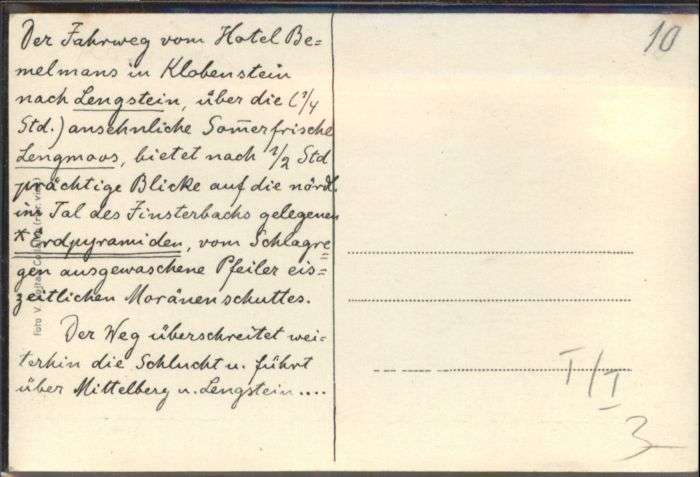 Der Fahrweg vom Hotel Be=
melmans in Klobenstein
nach Lengstein, über die (1/4
Std.) ansehnliche Som̅erfrische
Lengmoos, bietet nach 1/2 Std
prächtige Blicke auf die nördl.
im Tal des Finsterbachs gelegenen
*Erdpyramiden, vom Schlagre=
gen ausgewaschene Pfeiler eis=
zeitlichen Moränenschuttes.
Der Weg überschreitet wei=
terhin die Schlucht u. führt
über Mittelberg u. Lengstein....
foto V.
10
I/I
3